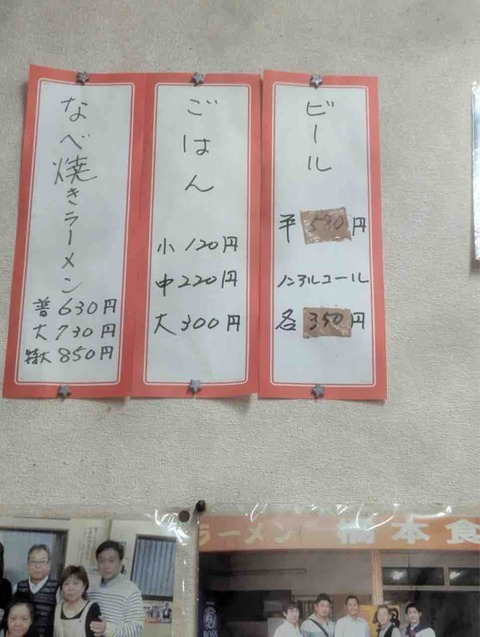 なべ焼きラーメン
普 630円
大 730円
特大 850円
ごはん
小 120円
中 220円
大 300円
ビール
580円
ノンアルコール
各 350円
ラーメン 橋本食
BOSS